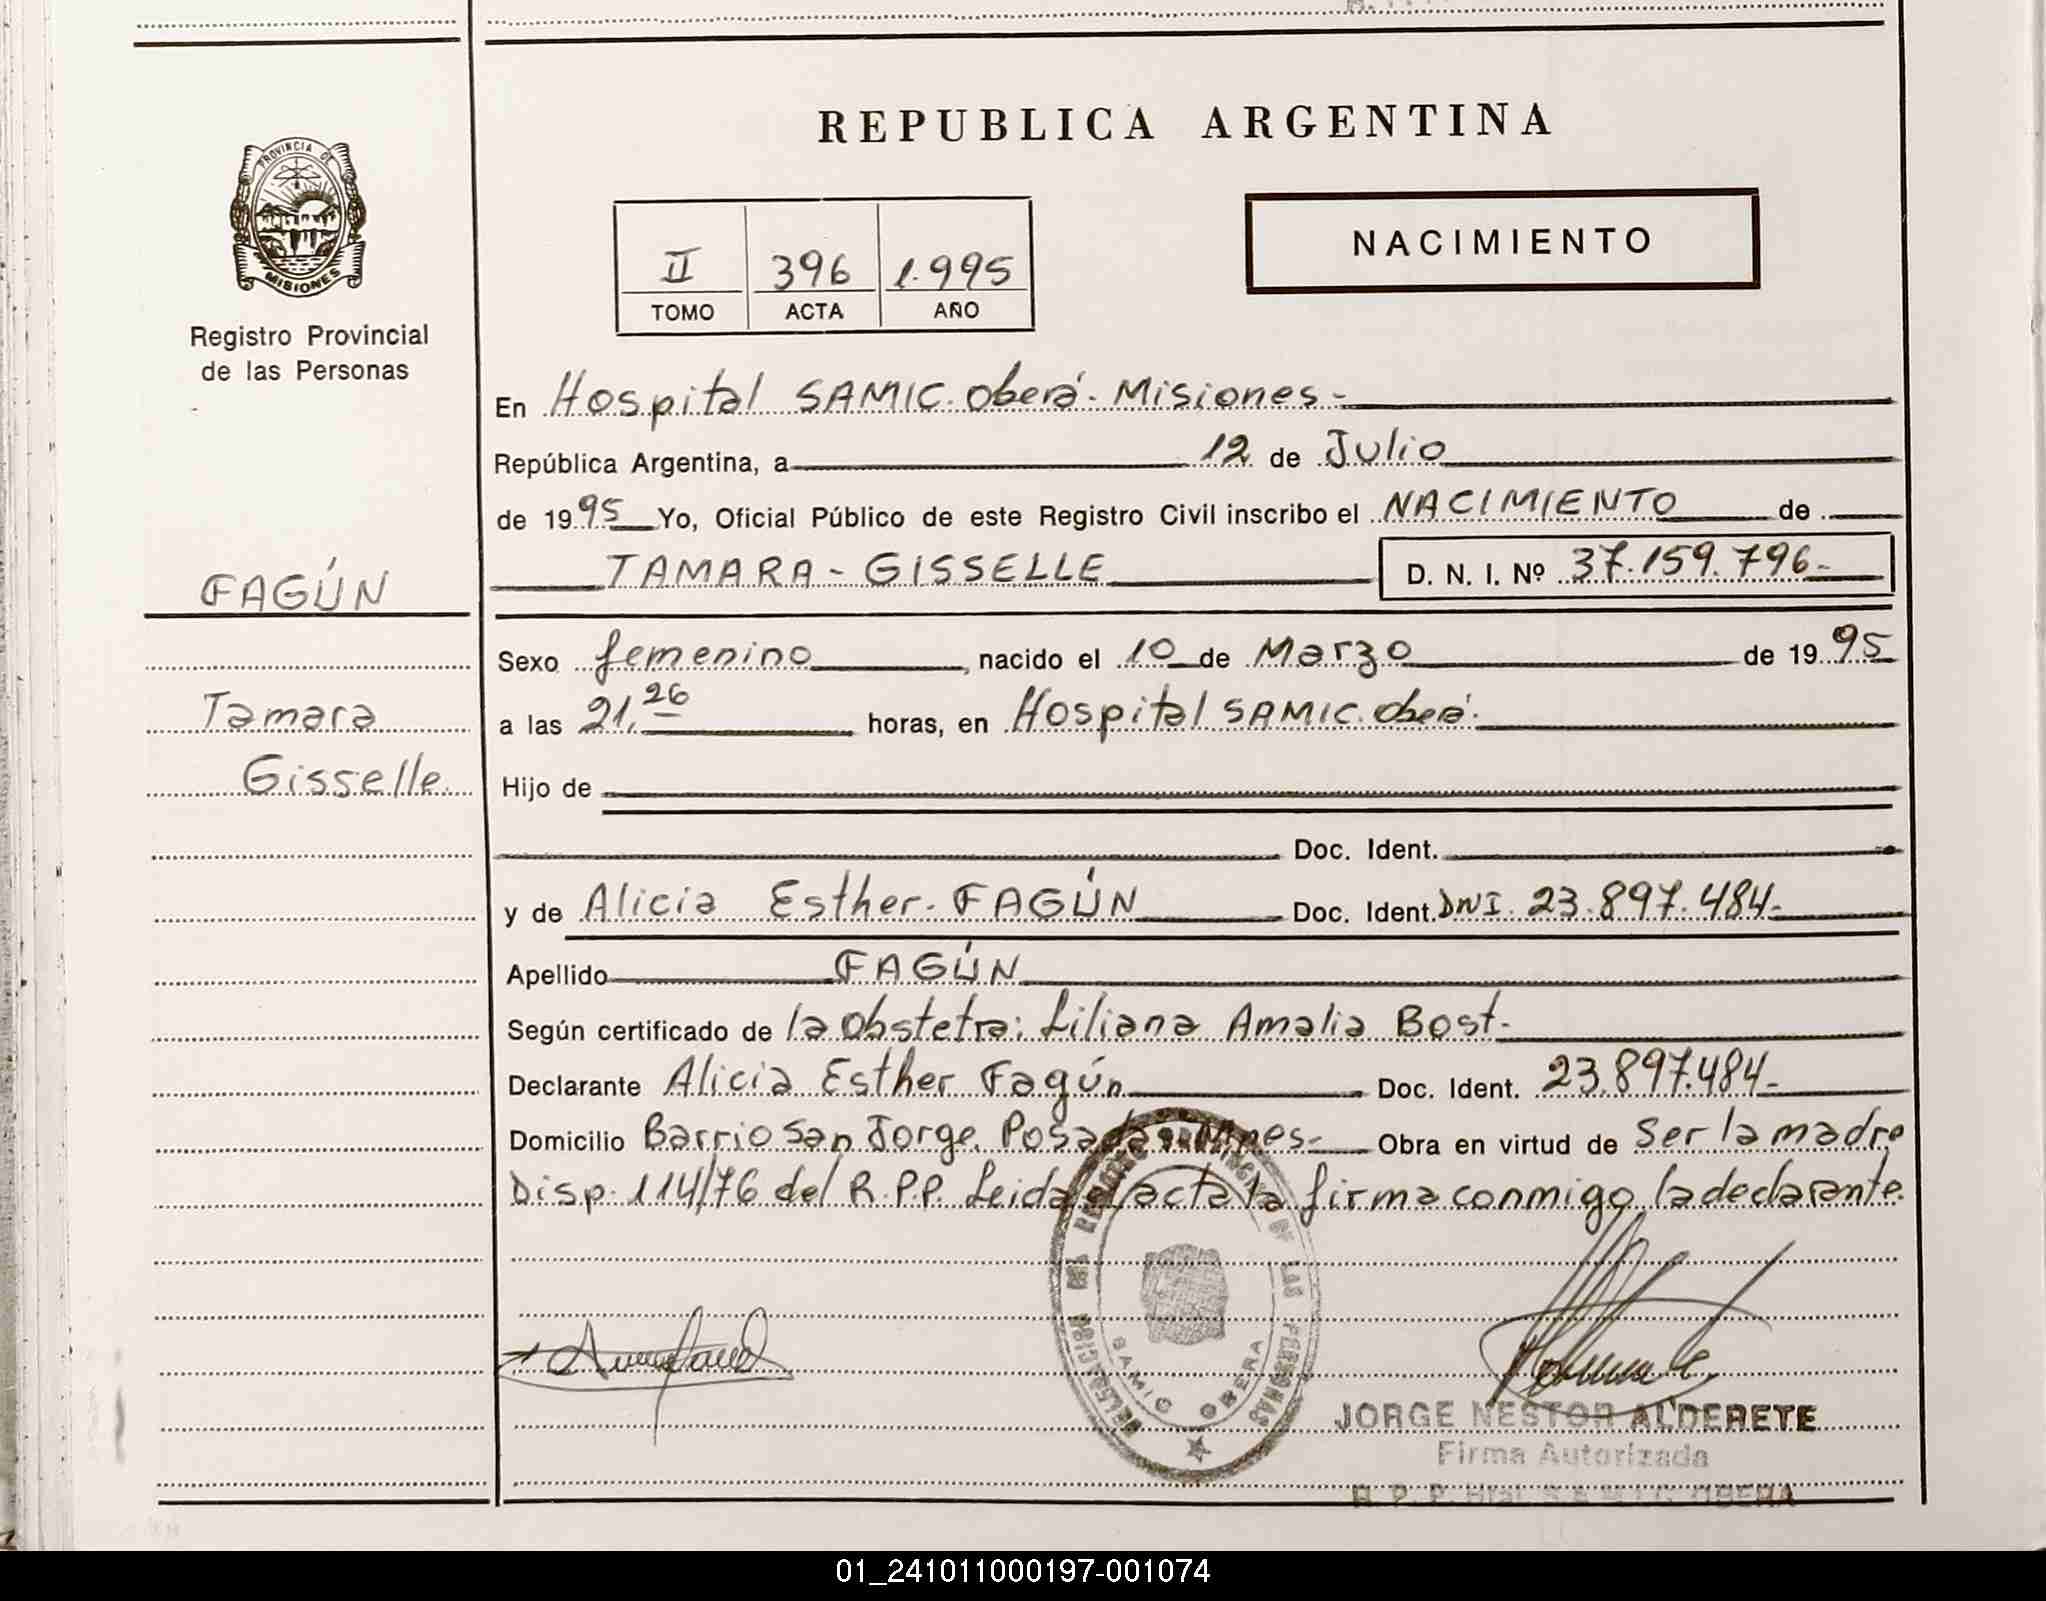 REPUBLICA ARGENTINA
PROVINCIA DE
MISIONES
Registro Provincial
de las Personas
II 396 1.995
TOMO ACTA AÑO
NACIMIENTO
En Hospital SAMIC. Oberá. Misiones-
República Argentina, a 12 de Julio
de 1995 Yo, Oficial Público de este Registro Civil inscribo el NACIMIENTO de
TAMARA - GISSELLE D. N. I. Nº 37.159.796-
FAGÚN
Tamara
Gisselle.
Sexo femenino, nacido el 10 de Marzo de 1995
a las 21.26 horas, en Hospital SAMIC. Oberá.
Hijo de
Doc. Ident.
y de Alicia Esther. FAGÚN Doc. Ident. DNI. 23.897.484-
Apellido FAGÚN
Según certificado de la obstetra: Liliana Amalia Bost.
Declarante Alicia Esther Fagún Doc. Ident. 23.897.484-
Domicilio Barrio San Jorge. Posadas. Mnes- Obra en virtud de Ser la madre
Disp. 114/76 del R.P.P. Leida el acta la firma conmigo la declarante.
DELEGACION DEL REGISTRO PROVINCIAL DE LAS PERSONAS
SAMIC OBERA
JORGE NESTOR ALDERETE
Firma Autorizada
R. P. P. Htal. S.A.M.I.C. OBERA
01_241011000197-001074